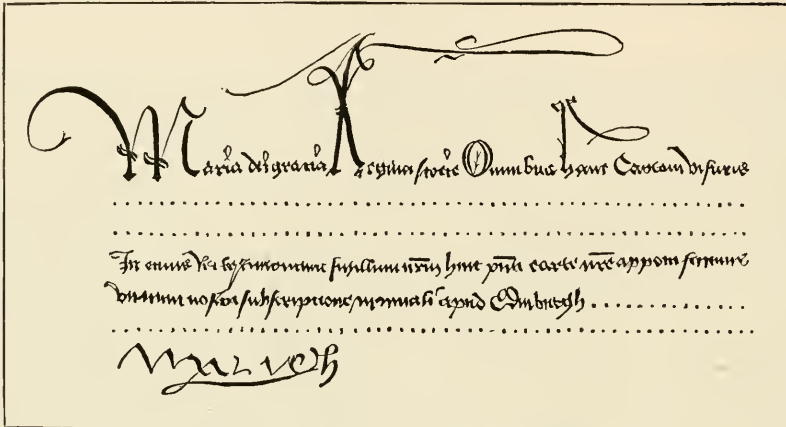 Maria dei gratia Regina scotie Omnibus hanc Cartam visuris
In cuius rei testimonium sigillum nrm huic pnti carte nre apponi fecimus
vnacum nostra subscriptione manuali apud Edinburgh